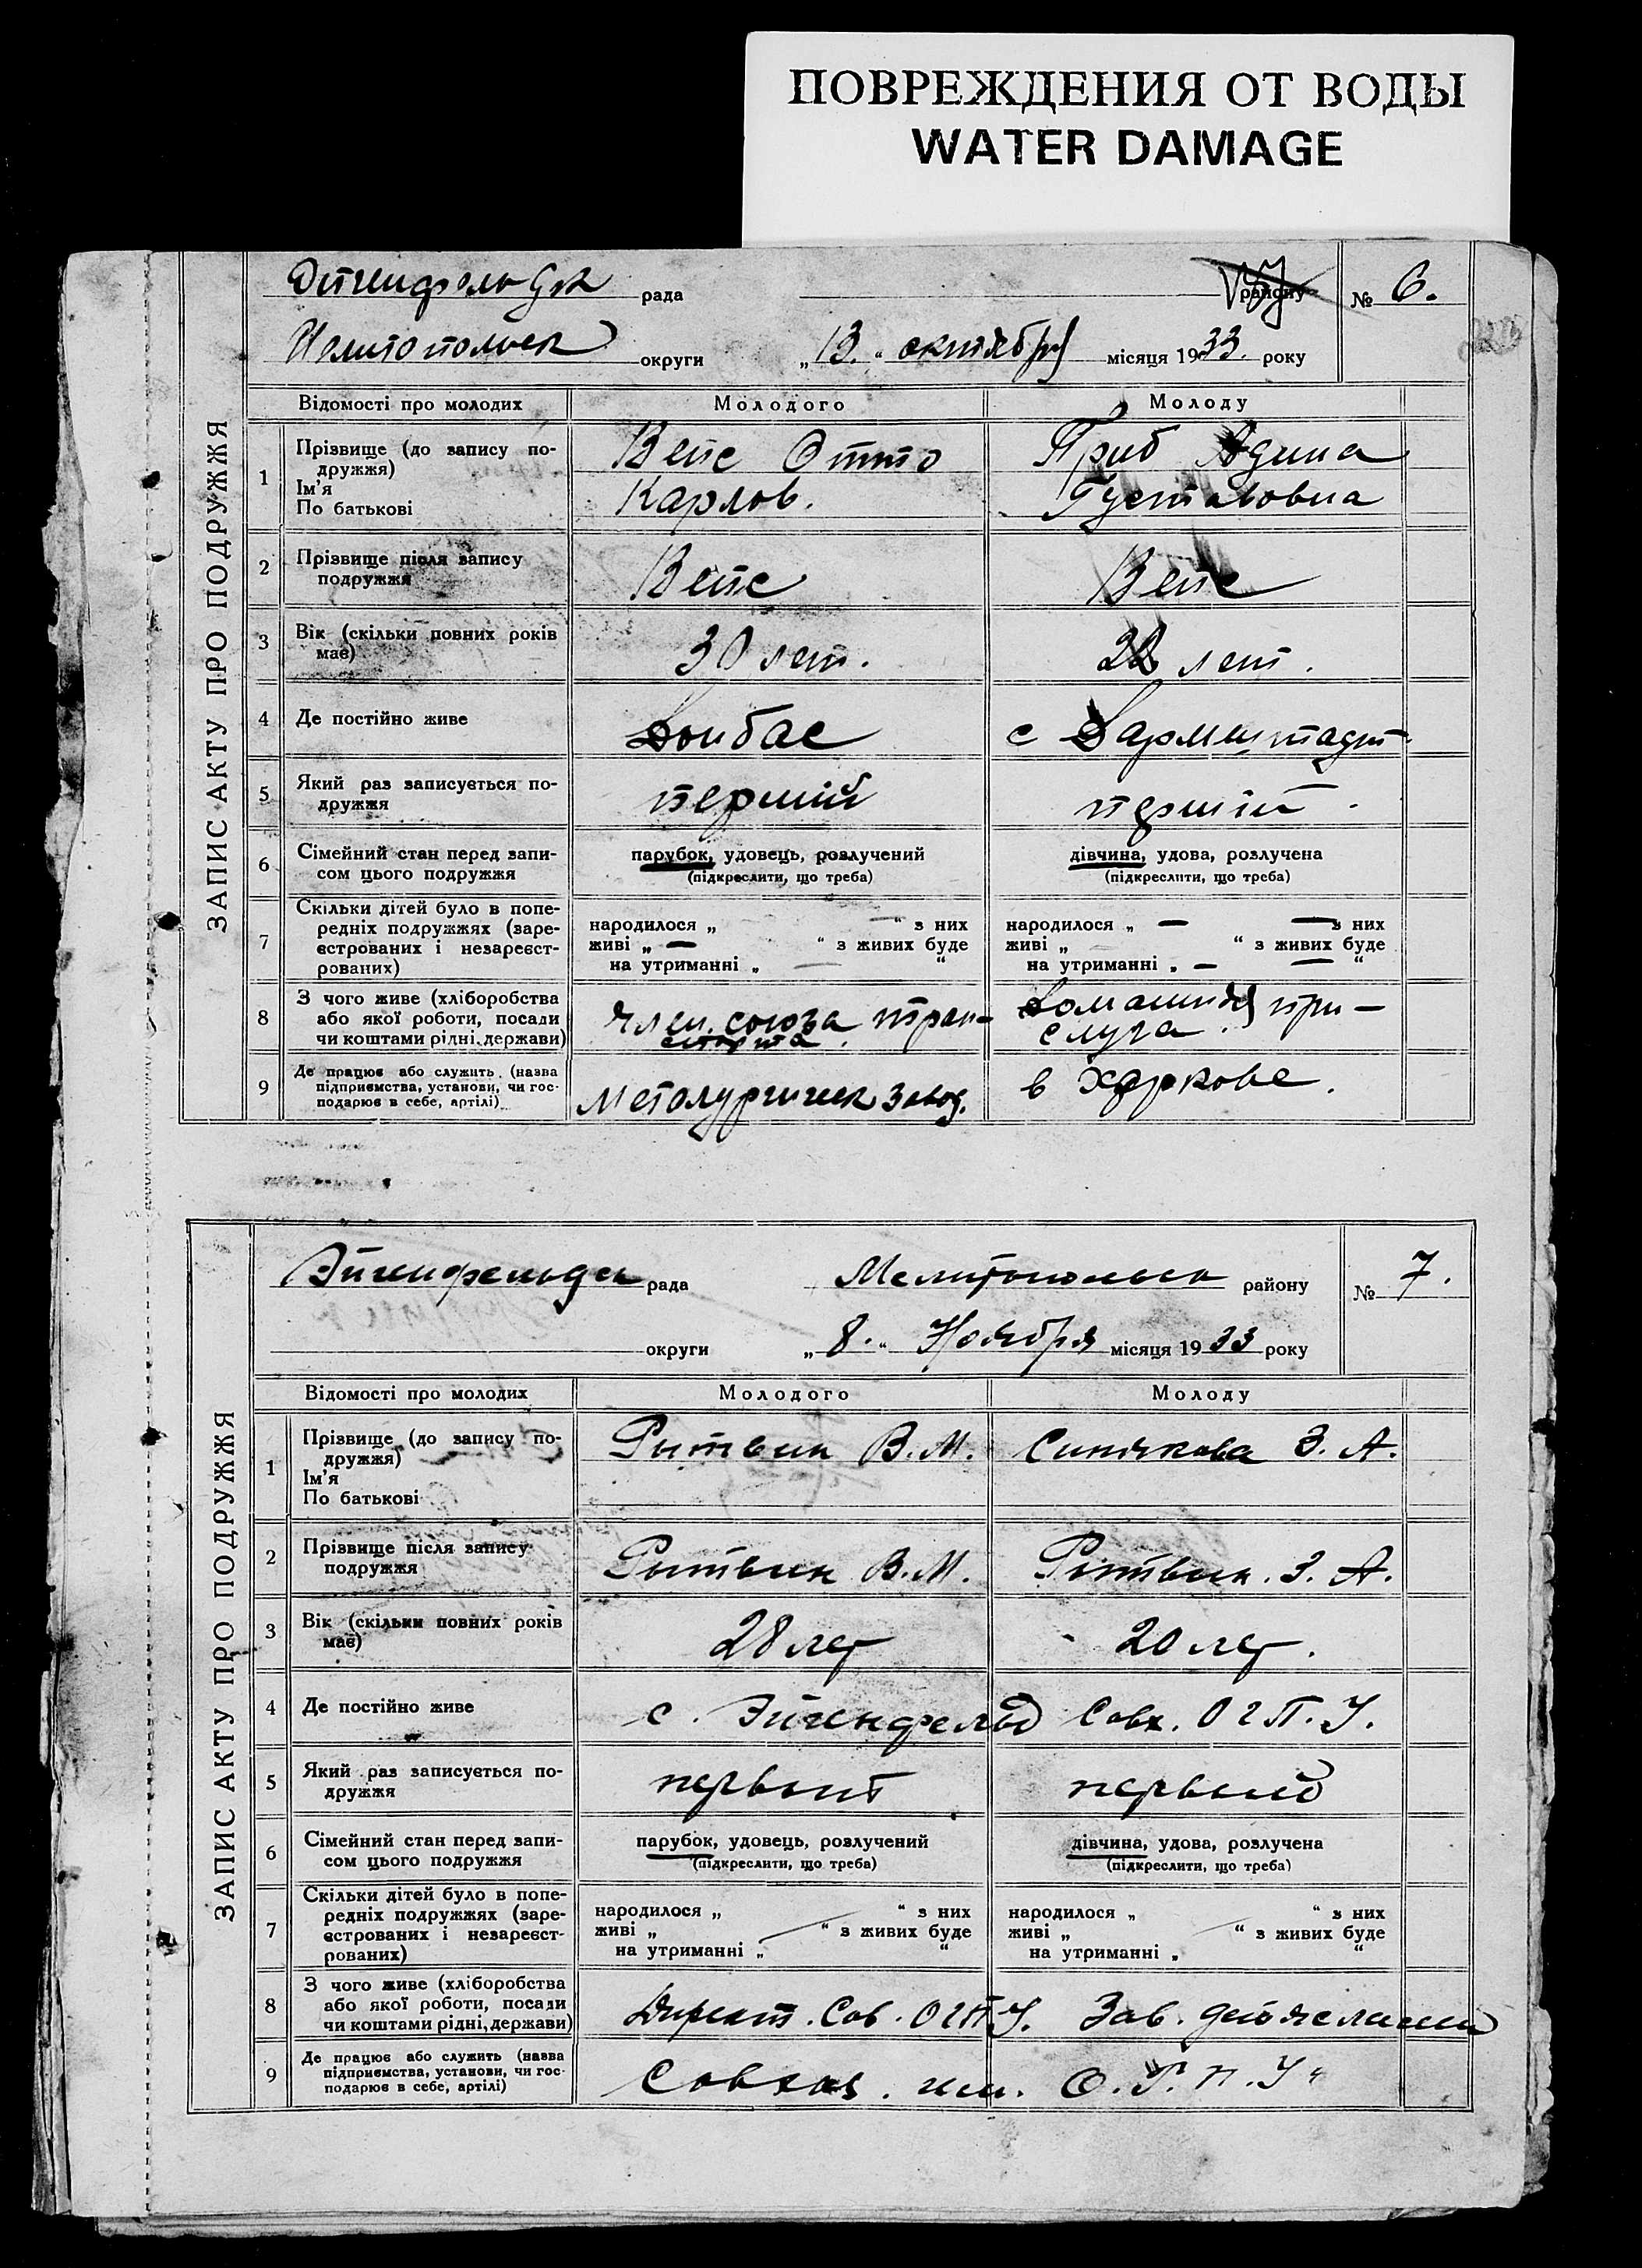 ПОВРЕЖДЕНИЯ ОТ ВОДЫ
WATER DAMAGE
ЗАПИС АКТУ ПРО ПОДРУЖЖЯ
рада району № 6.
округи „13.“ октября місяця 1933. року
Відомості про молодих Молодого Молоду
1 Прізвище (до запису по-
дружжя)
Ім'я
По батькові
Вейс Отто
Карлов.
Гриб Адина
Густавовна
2 Прізвище після запису
подружжя
Вейс Вейс
3 Вік (скільки повних років
має)
30 лет. лет.
4 Де постійно живе Донбас с Дармштадт
5 Який раз записується по-
дружжя
перший перший.
6 Сімейний стан перед запи-
сом цього подружжя
парубок, удовець, розлучений
(підкреслити, що треба)
дівчина, удова, розлучена
(підкреслити, що треба)
7 Скільки дітей було в попе-
редніх подружжях (заре-
єстрованих і незареєст-
рованих)
народилося „ — “ з них
живі „ — “ з живих буде
на утриманні „ — “
народилося „ — — з них
живі „ — “ з живих буде
на утриманні „ — — “
8 З чого живе (хліборобства
або якої роботи, посади
чи коштами рідні, держави)
член. союза тран-
спорта.
домашняя при-
слуга.
9 Де працює або служить (назва
підприємства, установи, чи гос-
подарює в себе, артілі)
Металургическ завод.
в Харкове.
ЗАПИС АКТУ ПРО ПОДРУЖЖЯ
Эйгенфельдск рада Мелитопольск району № 7.
округи „8.“ Ноября місяця 1933 року
Відомості про молодих Молодого Молоду
1 Прізвище (до запису по-
дружжя)
Ім'я
По батькові
В. М. Синякова З. А.
2 Прізвище після запису
подружжя
В. М. З. А.
3 Вік (скільки повних років
має)
28 лет 20 лет.
4 Де постійно живе с. Эйгенфельд Совх. О Г П. У.
5 Який раз записується по-
дружжя
первый первый
6 Сімейний стан перед запи-
сом цього подружжя
парубок, удовець, розлучений
(підкреслити, що треба)
дівчина, удова, розлучена
(підкреслити, що треба)
7 Скільки дітей було в попе-
редніх подружжях (заре-
єстрованих і незареєст-
рованих)
народилося „ “ з них
живі „ “ з живих буде
на утриманні „ “
народилося „ “ з них
живі „ “ з живих буде
на утриманні „ “
8 З чого живе (хліборобства
або якої роботи, посади
чи коштами рідні, держави)
Директ. Сов. ОГПУ. Зав. детяслями
9 Де працює або служить (назва
підприємства, установи, чи гос-
подарює в себе, артілі)
Совхоз. им. О. Г. П. У“